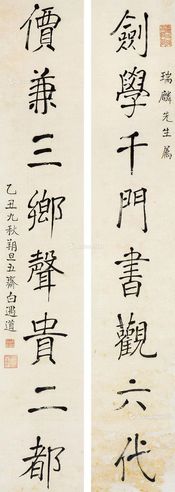 瑞麟先生属
劍學千門書觀六代
價兼三鄉聲貴二都
乙丑九秋朔旦五齋白遇道